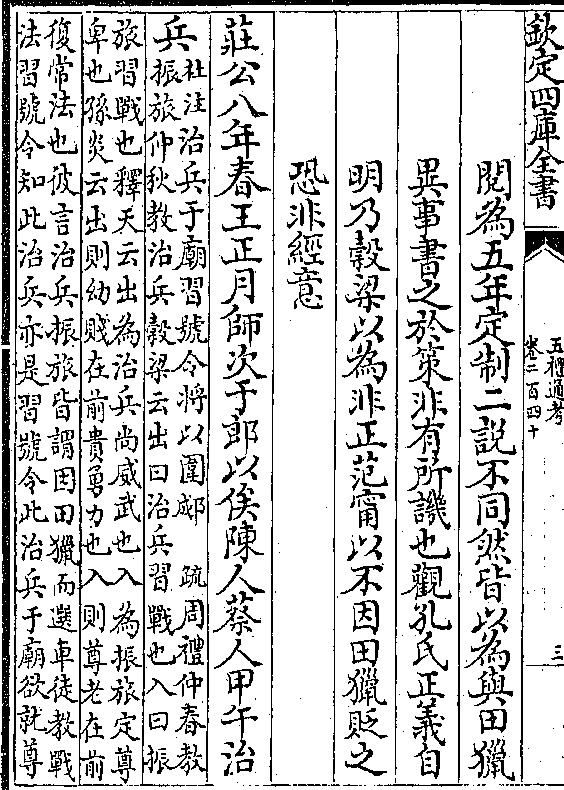 欽定四庫全書
五禮通考
卷二百四十
三
閱為五年定制二説不同然皆以為與田獵
異事書之於策非有所譏也觀孔氏正義自
明乃穀梁以為非正范甯以不因田獵貶之
恐非經意
莊公八年春王正月師次于郎以俟陳人蔡人甲午治
兵
杜注治兵于廟習號令將以圍郕 疏周禮仲春教
振旅仲秋教治兵穀梁云出曰治兵習戰也入曰振
旅習戰也釋天云出為治兵尚威武也入為振旅定尊
卑也孫炎云出則幼賤在前貴勇力也入則尊老在前
復常法也彼言治兵振旅皆謂因田獵而選車徒教戰
法習號令知此治兵亦是習號令此治兵于廟欲就尊